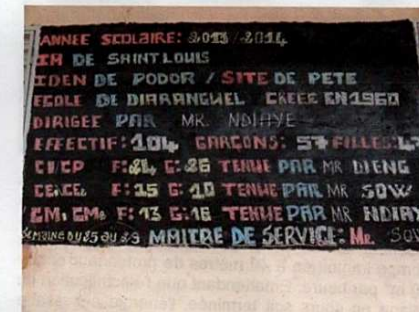 ANNEE SCOLAIRE: 2013/2014
IA DE SAINT LOUIS
IDEN DE PODOR / SITE DE PETE
ECOLE DE DIARANGUEL CREEE EN 1960
DIRIGEE PAR MR NDIAYE
EFFECTIF: 104 GARÇONS: 57 FILLES: 47
CI/CP F: 24 G: 26 TENUE PAR MR DIENG
CE1CE2 F: 15 G: 10 TENUE PAR MR SOW
CM1 CM2 F: 13 G: 16 TENUE PAR MR NDIA
SEMAINE DU 25 AU 29 MAITRE DE SERVICE: Mr. SOW